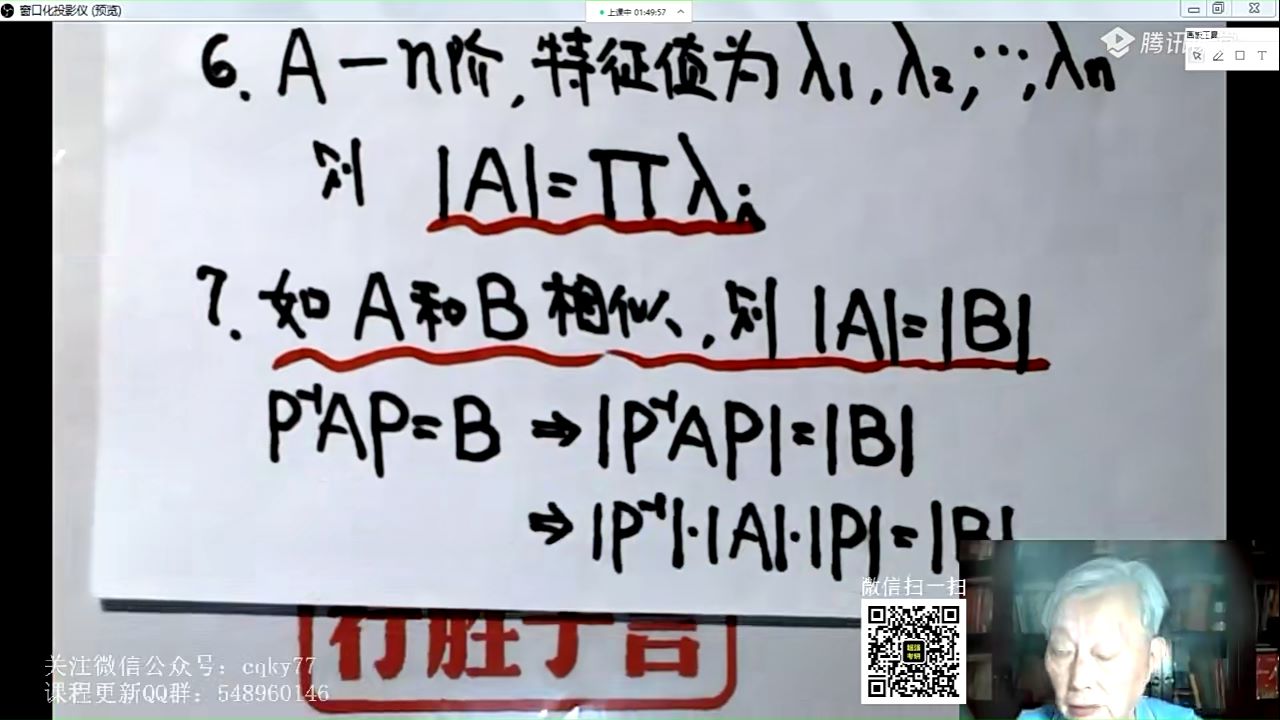 窗口化投影仪 (预览)
上课中 01:49:57
腾讯
画板工具
T
6. A－n阶,特征值为 λ1, λ2, …, λn
则 |A|=∏λi
7. 如 A和B 相似, 则 |A|=|B|
P⁻¹AP=B ⇒ |P⁻¹AP|=|B|
⇒ |P⁻¹|·|A|·|P|=|B|
微信扫一扫
行胜于言
关注微信公众号: cqky77
课程更新QQ群: 548960146